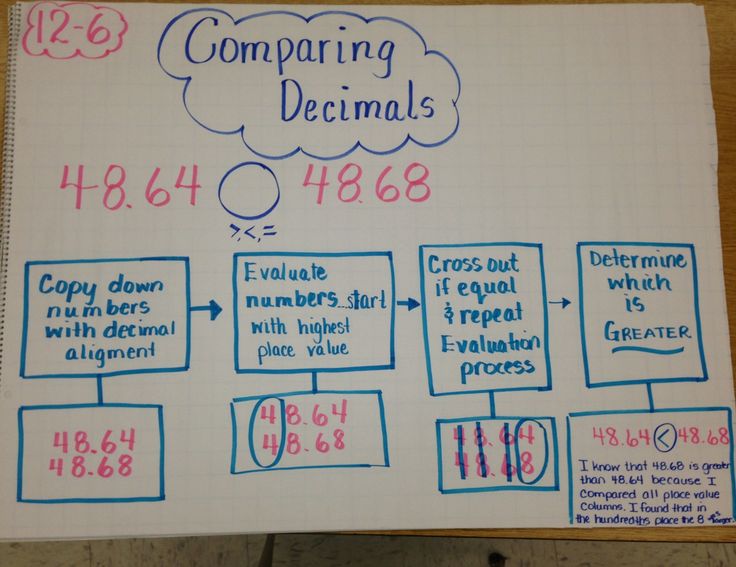 12-6
Comparing
Decimals
48.64 48.68
>,<,=
Copy down
numbers
with decimal
aligment
Evaluate
numbers...start
with highest
place value
Cross out
if equal
& repeat
Evaluation
process
Determine
which
is
GREATER
48.64
48.68
48.64
48.68
48.64
48.68
48.64 < 48.68
I know that 48.68 is greater
than 48.64 because I
Compared all place value
columns. I found that in
the hundredths place the 8 is
larger.